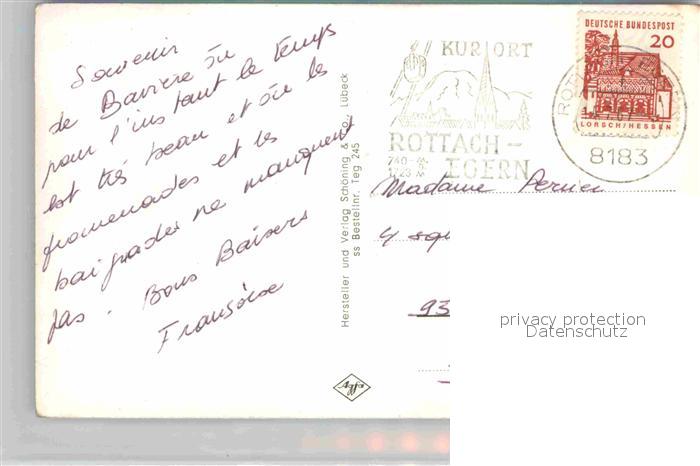 Souvenir
de Bavière où
pour l'instant le temps
est très beau et où les
promenades et les
baignades ne manquent
pas. Bons Baisers
Françoise
Hersteller und Verlag Schöning & Co., Lübeck
ss Bestellnr. Teg 245
Agfa
KURORT
ROTTACH-
EGERN
740-
1723 M
DEUTSCHE BUNDESPOST
20
LORSCH/HESSEN
8183
Madame Perrier
4 squ
93
privacy protection
Datenschutz